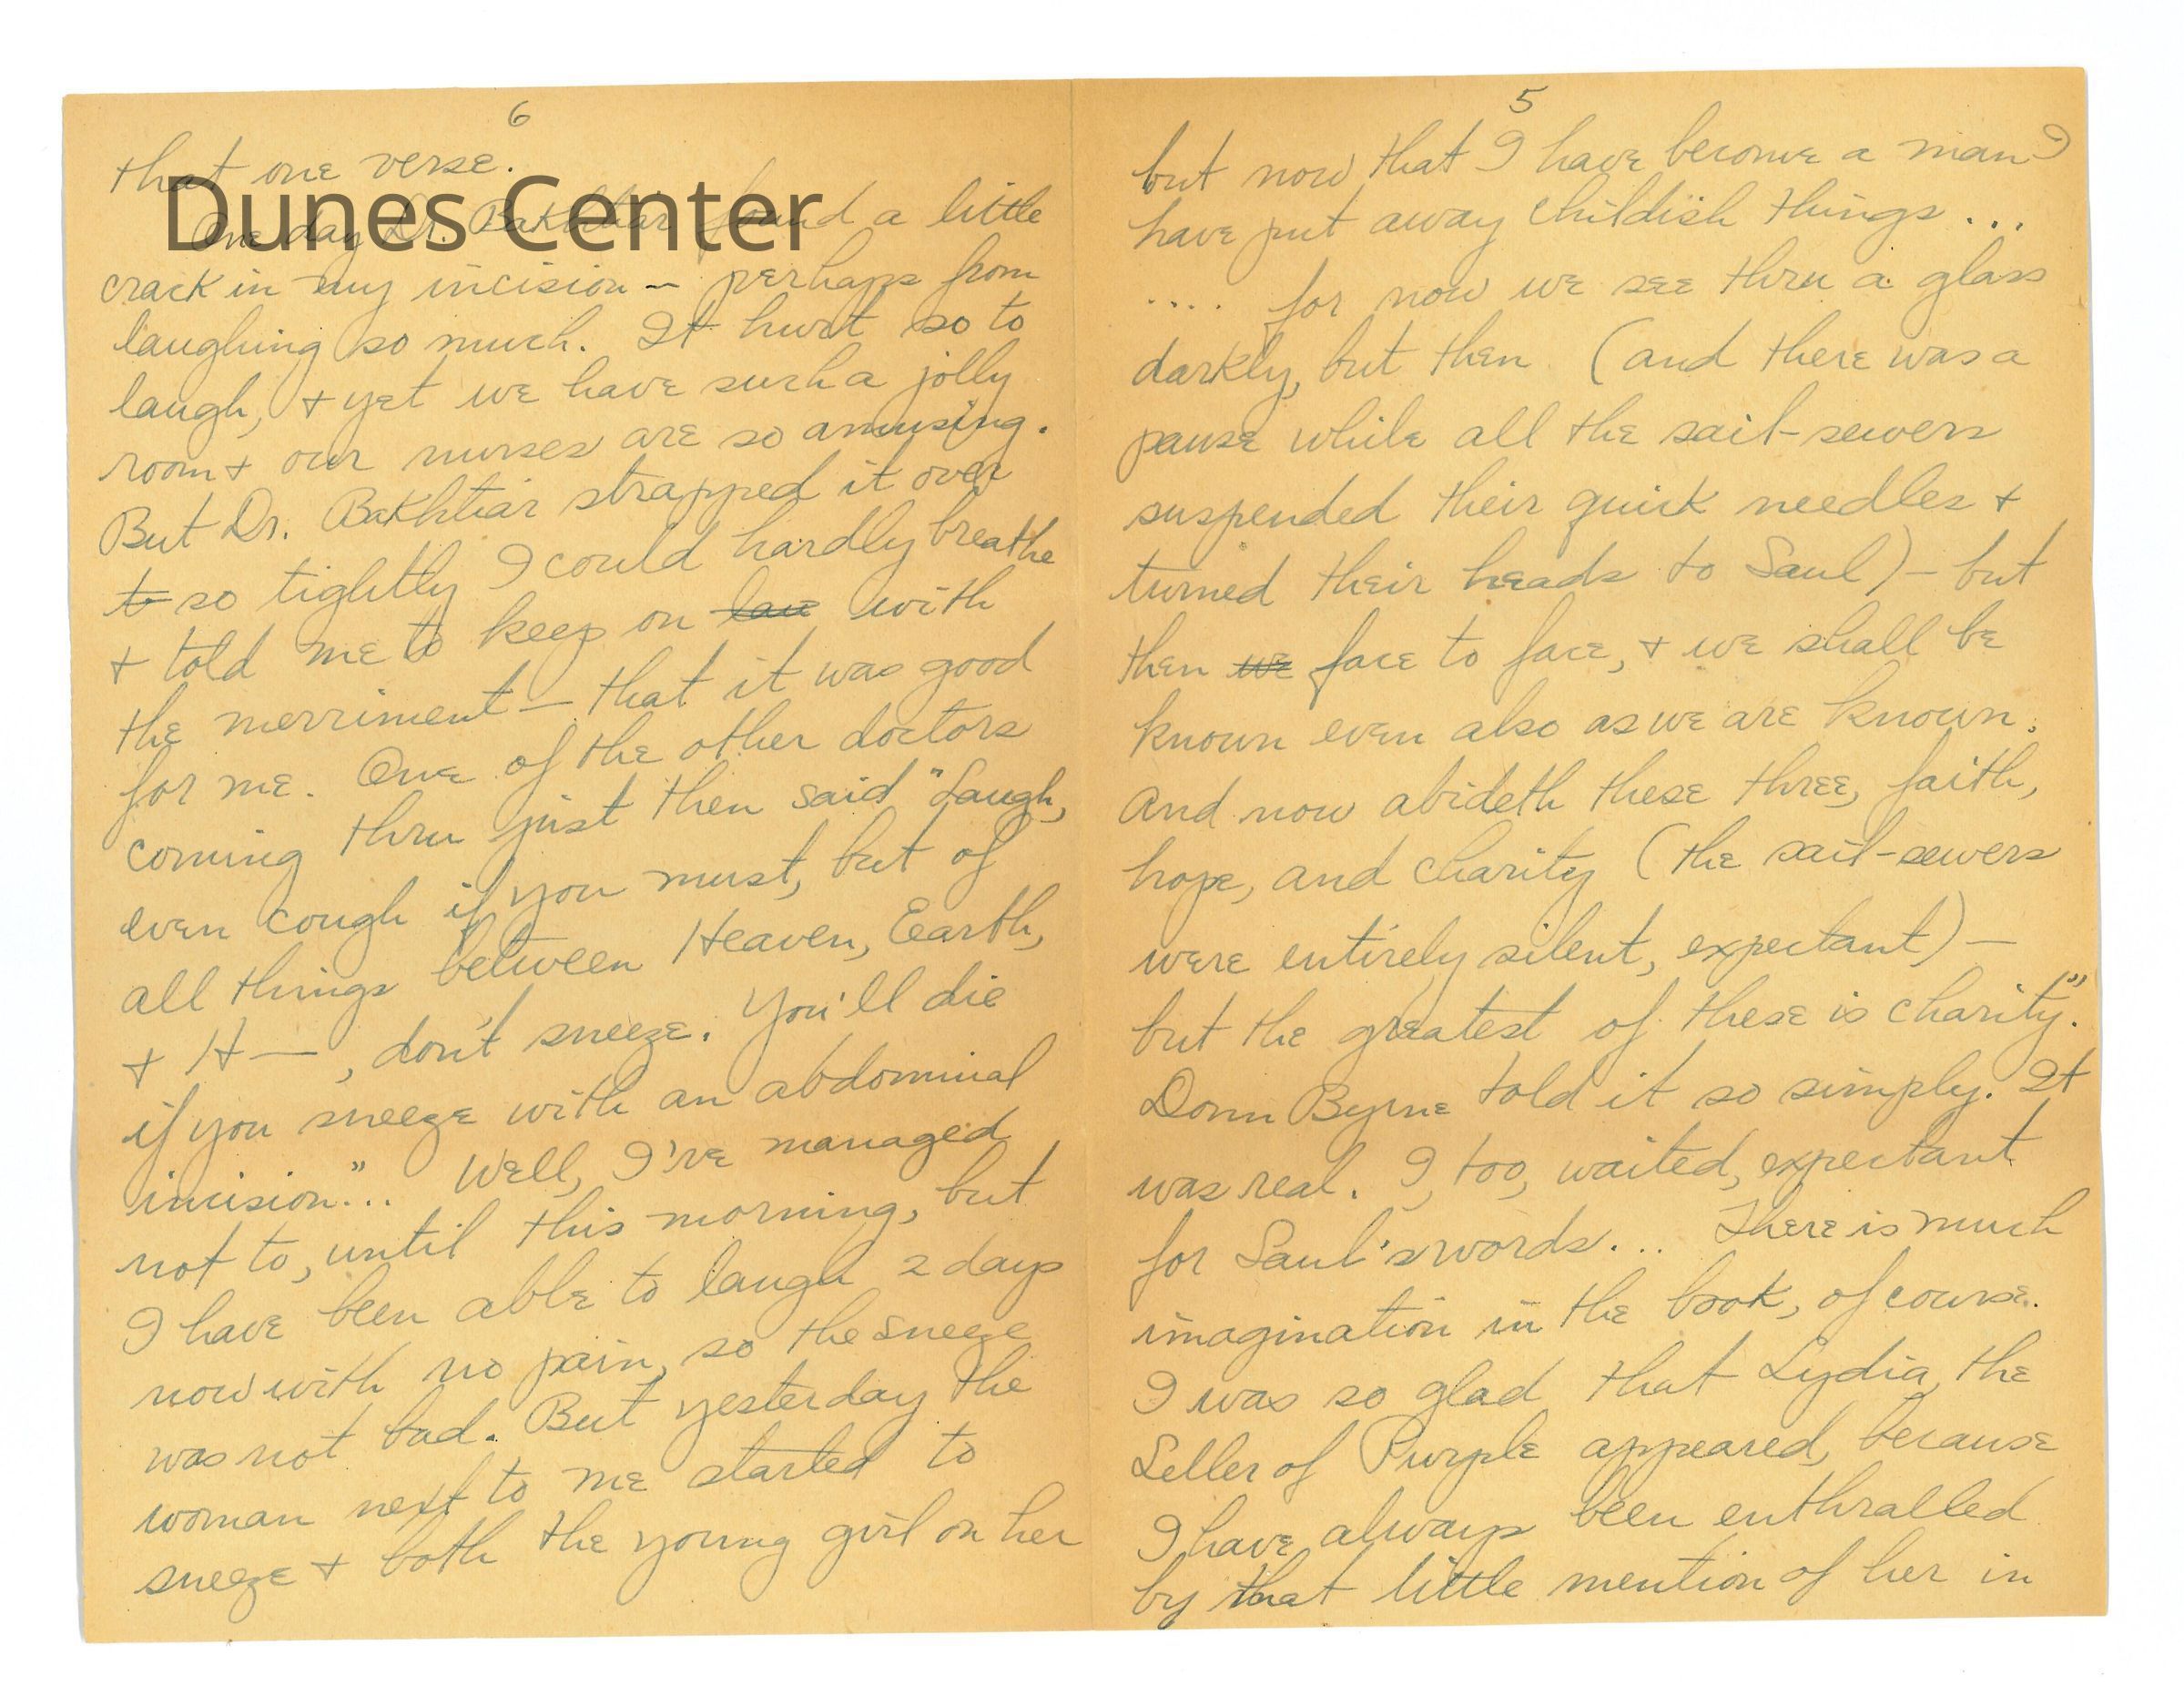 6
that one verse.
Dunes Center
One day Dr. Bakhtiar found a little
crack in my incision — perhaps from
laughing so much. It hurt so to
laugh, + yet we have such a jolly
room + our nurses are so amusing.
But Dr. Bakhtiar strapped it over
t so tightly I could hardly breathe
+ told me to keep on lau with
the merriment — that it was good
for me. One of the other doctors
coming thru just then said "Laugh,
even cough if you must, but of
all things between Heaven, Earth,
+ H—, don't sneeze. You'll die
if you sneeze with an abdominal
incision"... Well, I've managed
not to, until this morning, but
I have been able to laugh 2 days
now with no pain, so the sneeze
was not bad. But yesterday the
woman next to me started to
sneeze + both the young girl on her
5
but now that I have become a man I
have put away childish things...
.... for now we see thru a glass
darkly, but then (and there was a
pause while all the sail-sewers
suspended their quick needles +
turned their heads to Saul) — but
then we face to face, + we shall be
known even also as we are known.
And now abideth these three, faith,
hope, and charity (the sail-sewers
were entirely silent, expectant) —
but the greatest of these is charity."
Donn Byrne told it so simply. It
was real. I, too, waited, expectant
for Saul's words... There is much
imagination in the book, of course.
I was so glad that Lydia, the
Seller of Purple appeared, because
I have always been enthralled
by that little mention of her in